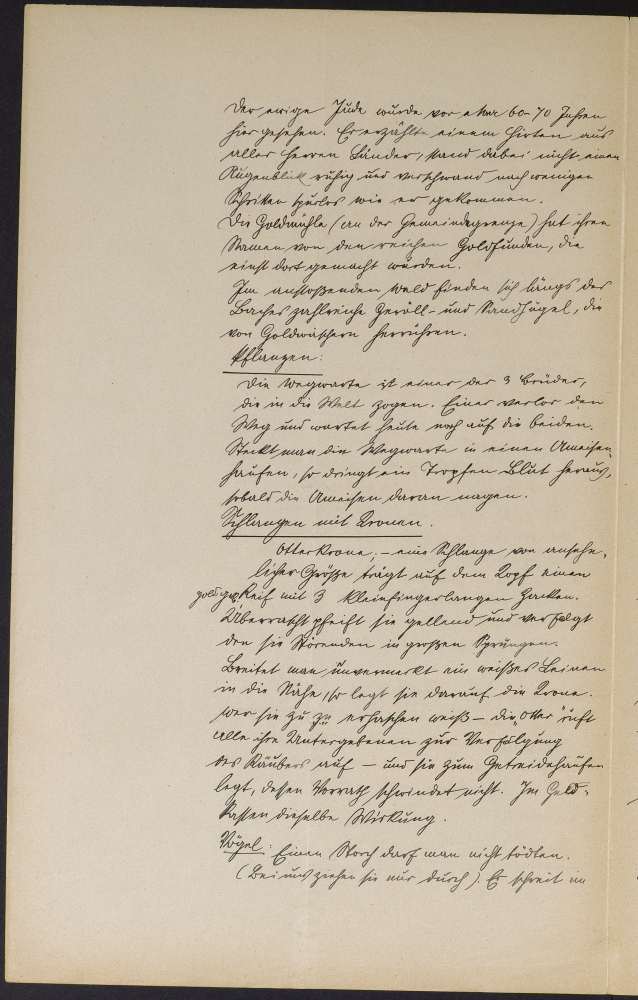 Der ewige Jude wurde vor etwa 60-70 Jahren
hier gesehen. Er erzählte einem Hirten aus
aller Herren Länder, stand dabei nicht einen
Augenblick ruhig und verschwand nach wenigen
Schritten spurlos wie er gekommen.
Die Goldmühle (an der Gemeindegrenze) hat ihren
Namen von den reichen Goldfunden, die
einst dort gemacht wurden.
Im anstoßenden Wald finden sich längs des
Baches zahlreiche Geröll- und Sandhügel, die
von Goldwäschern herrühren.
Pflanzen:
Die Wegwarte ist einer der 3 Brüder,
die in die Welt zogen. Einer verlor den
Weg und wartet heute noch auf die beiden.
Steckt man die Wegwarte in einen Ameisen-
haufen, so dringt ein Tropfen Blut heraus,
sobald die Ameisen daran nagen.
Schlangen mit Kronen.
Otterkrone; – eine Schlange von ansehn-
licher Größe trägt auf dem Kopf einen
goldigen Reif mit 3 kleinfingerlangen Zacken.
Überrascht pfeift sie gellend und verfolgt
den sie Störenden in großen Sprüngen.
Breitet man unvermerkt ein weißes Leinen
in die Nähe, so legt sie darauf die Krone.
Wer sie zu zu erhaschen weiß – die Otter ruft
alle ihre Untergebenen zur Verfolgung
des Räubers auf – und sie zum Getreidehaufen
legt, dessen Vorrath schwindet nicht. Im Geld-
kasten dieselbe Wirkung.
Vögel: Einen Storch darf man nicht tödten.
(Bei uns ziehen sie nur durch). Er schreit im